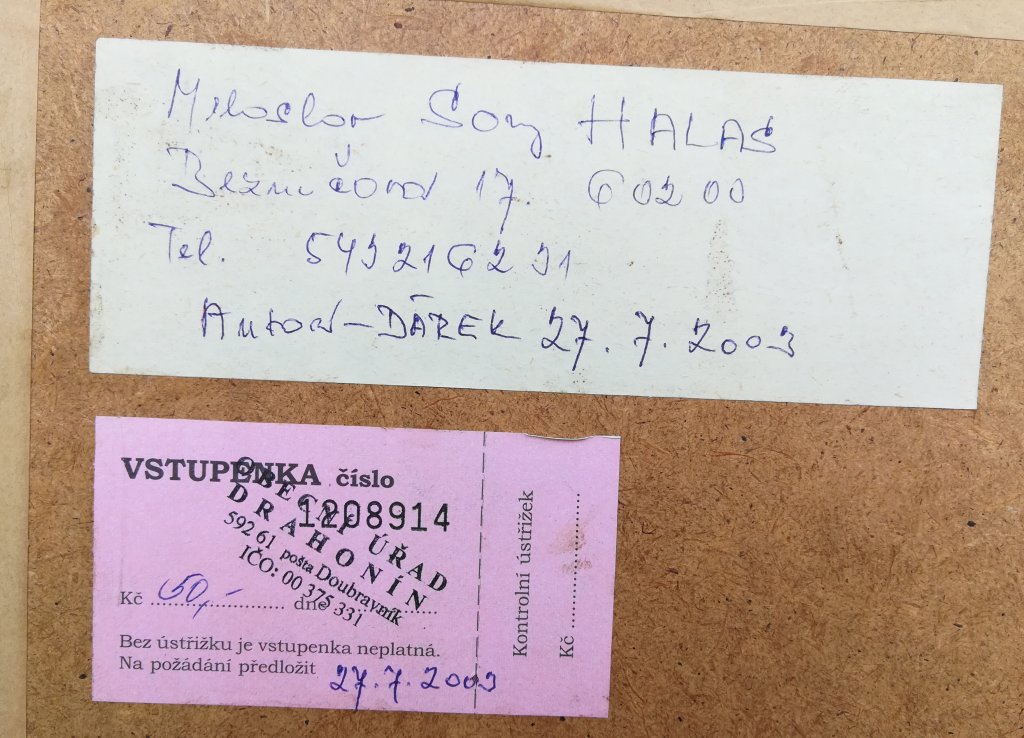 Miloslav Sony HALAS
Bezručova 17. 602 00
Tel. 543216231
Autor - DÁREK 27. 7. 2003
VSTUPENKA číslo
1208914
OBECNÍ ÚŘAD
DRAHONÍN
592 61 pošta Doubravník
IČO: 00 375 331
Kč 50,- dne
Bez ústřižku je vstupenka neplatná.
Na požádání předložit 27.7.2003
Kontrolní ústřižek
Kč